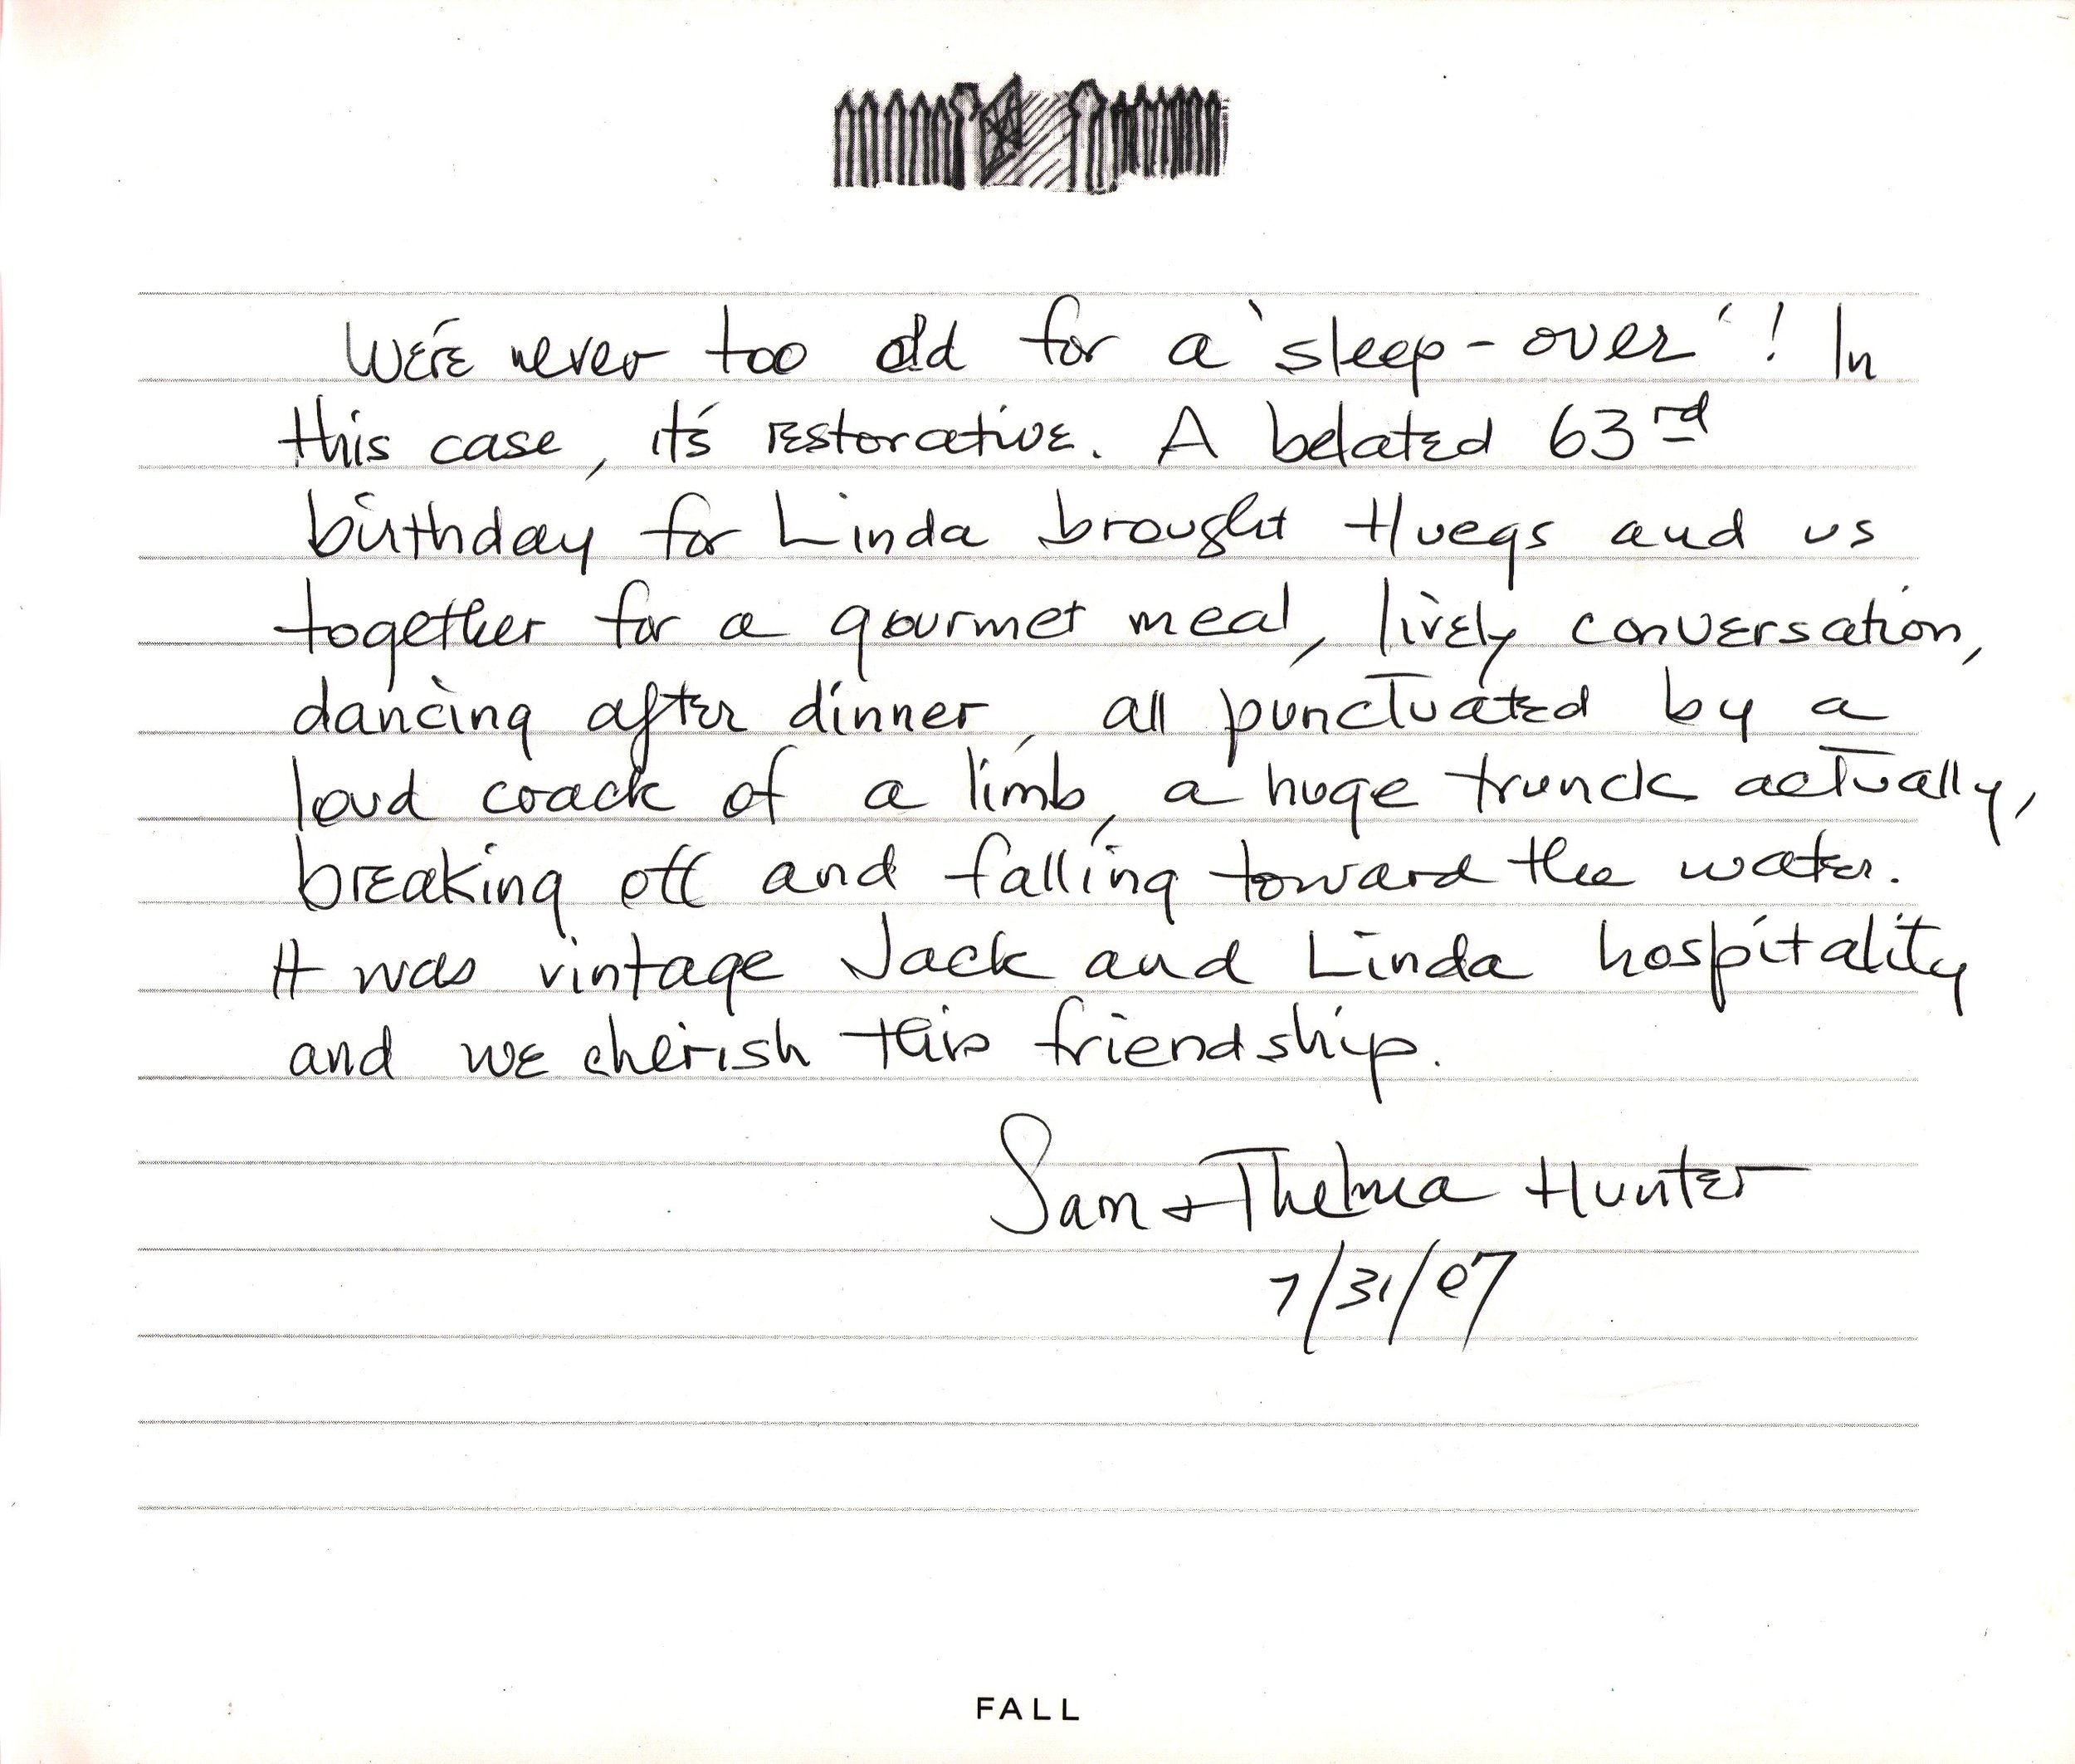 We're never too old for a 'sleep-over'! In
this case, it's restorative. A belated 63rd
birthday for Linda brought Huegs and us
together for a gourmet meal, lively conversation,
dancing after dinner, all punctuated by a
loud crack of a limb, a huge trunck actually,
breaking off and falling toward the water.
It was vintage Jack and Linda hospitality
and we cherish this friendship.
Sam + Thelma Hunter
7/31/07
FALL